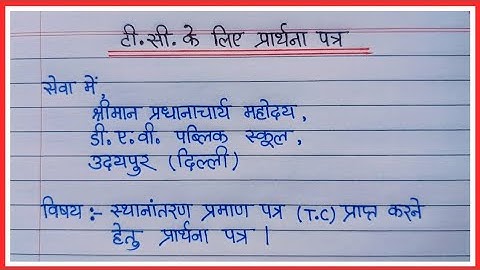 टी.सी. के लिए प्रार्थना पत्र
सेवा में,
श्रीमान प्रधानाचार्य महोदय,
डी.ए.वी. पब्लिक स्कूल,
उदयपुर (दिल्ली)
विषय :- स्थानांतरण प्रमाण पत्र (T.C) प्राप्त करने
हेतु प्रार्थना पत्र |